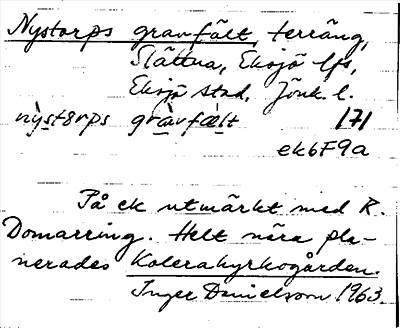 Nystorps gravfält, terräng,
Slättna, Eksjö lfs,
Eksjö stad, Jönk. l.
nỳstɵrps gràvfæ̀lt 171
ek6F9a
På ek utmärkt med R.
Domarring. Helt nära pla-
nerades Kolerakyrkogården.
Inger Danielsson 1963.